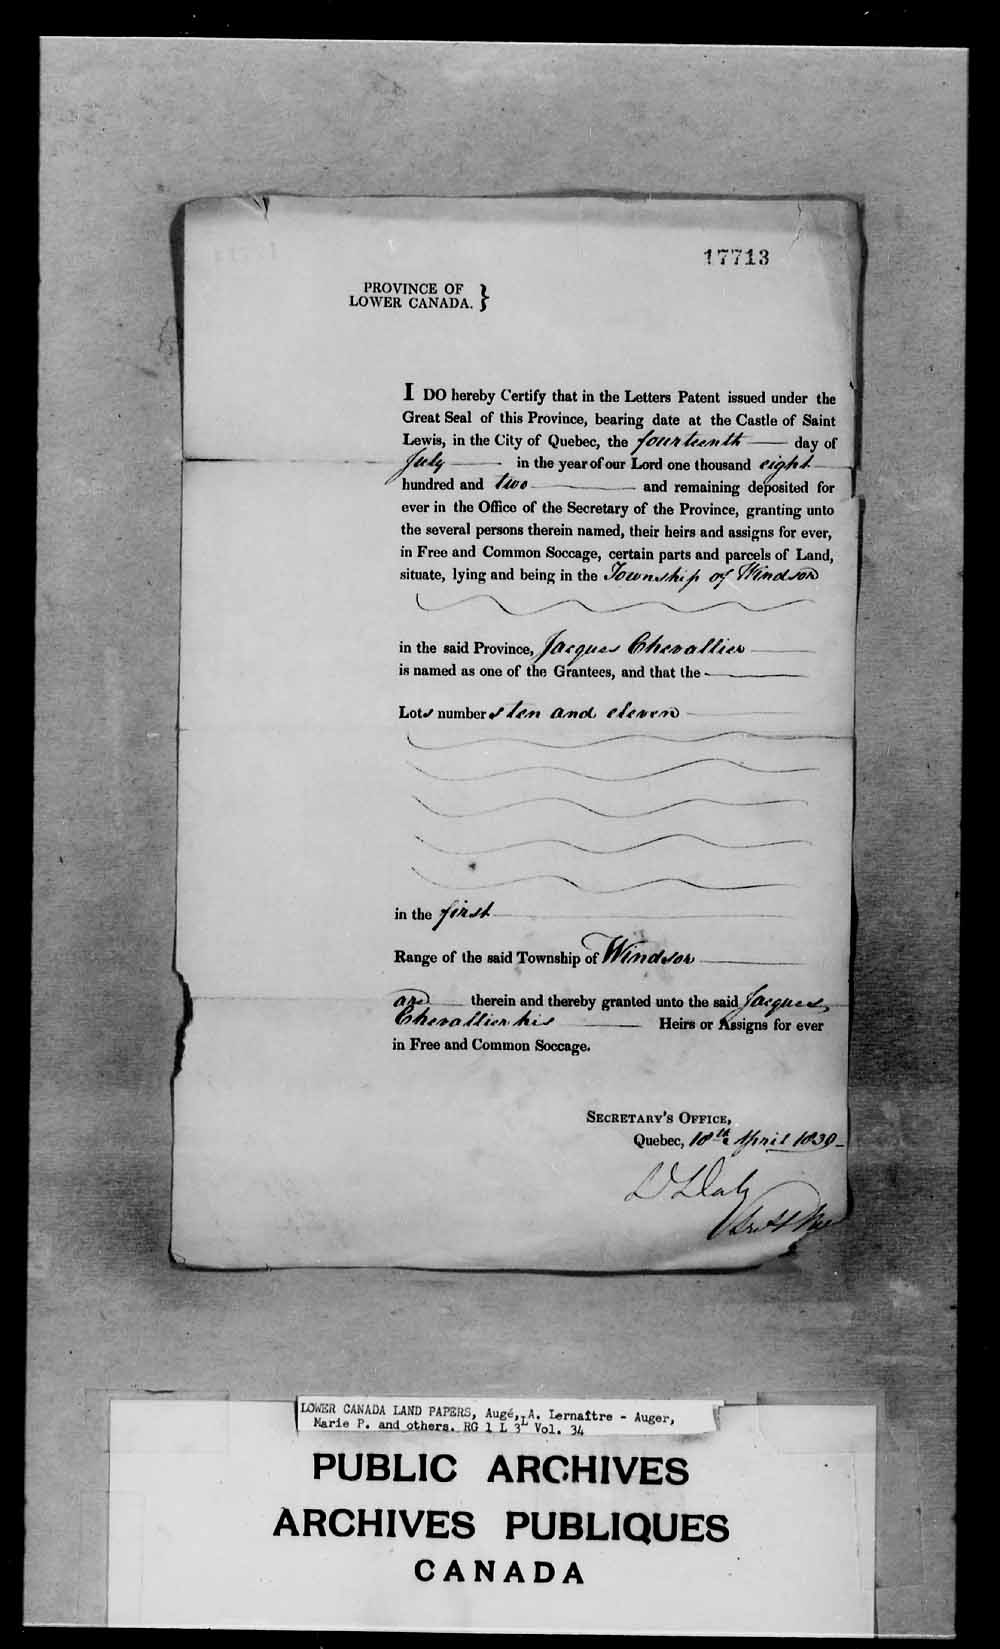 17713
PROVINCE OF
LOWER CANADA. }
I DO hereby Certify that in the Letters Patent issued under the
Great Seal of this Province, bearing date at the Castle of Saint
Lewis, in the City of Quebec, the fourteenth day of
July in the year of our Lord one thousand eight
hundred and two and remaining deposited for
ever in the Office of the Secretary of the Province, granting unto
the several persons therein named, their heirs and assigns for ever,
in Free and Common Soccage, certain parts and parcels of Land,
situate, lying and being in the Township of Windsor
in the said Province, Jacques Chevallier
is named as one of the Grantees, and that the
Lots numbers ten and eleven
in the first
Range of the said Township of Windsor
are therein and thereby granted unto the said Jacques
Chevallier his Heirs or Assigns for ever
in Free and Common Soccage.
SECRETARY'S OFFICE,
Quebec, 18th April 1839
D Daly
LOWER CANADA LAND PAPERS, Augé, A. Lernaître - Auger,
Marie P. and others. RG 1 L 3L Vol. 34
PUBLIC ARCHIVES
ARCHIVES PUBLIQUES
CANADA